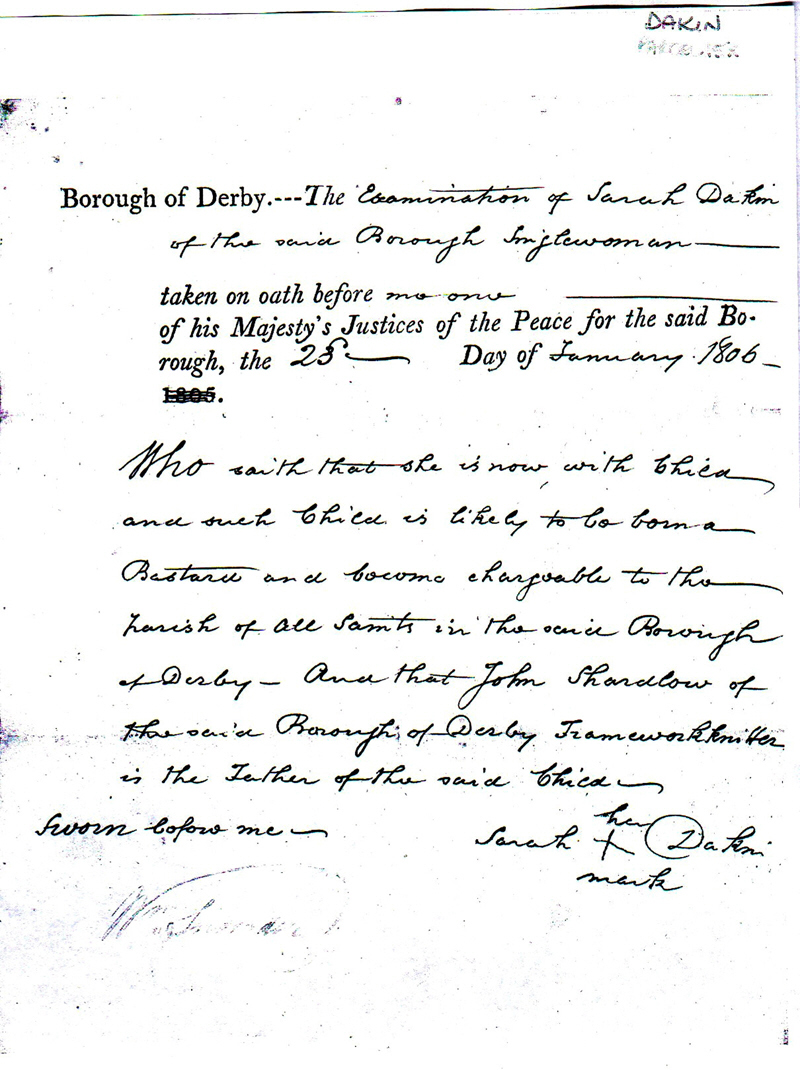 DAKIN
Borough of Derby.---The Examination of Sarah Dakin
of the said Borough Singlewoman
taken on oath before me one
of his Majesty's Justices of the Peace for the said Bo-
rough, the 23d Day of January 1806
1805.
Who saith that she is now with Child
and such Child is likely to be born a
Bastard and become chargeable to the
Parish of All Saints in the said Borough
of Derby – And that John Shardlow of
the said Borough of Derby Frameworkknitter
is the Father of the said Child
Sworn before me
her
Sarah + Dakin
mark
Wm